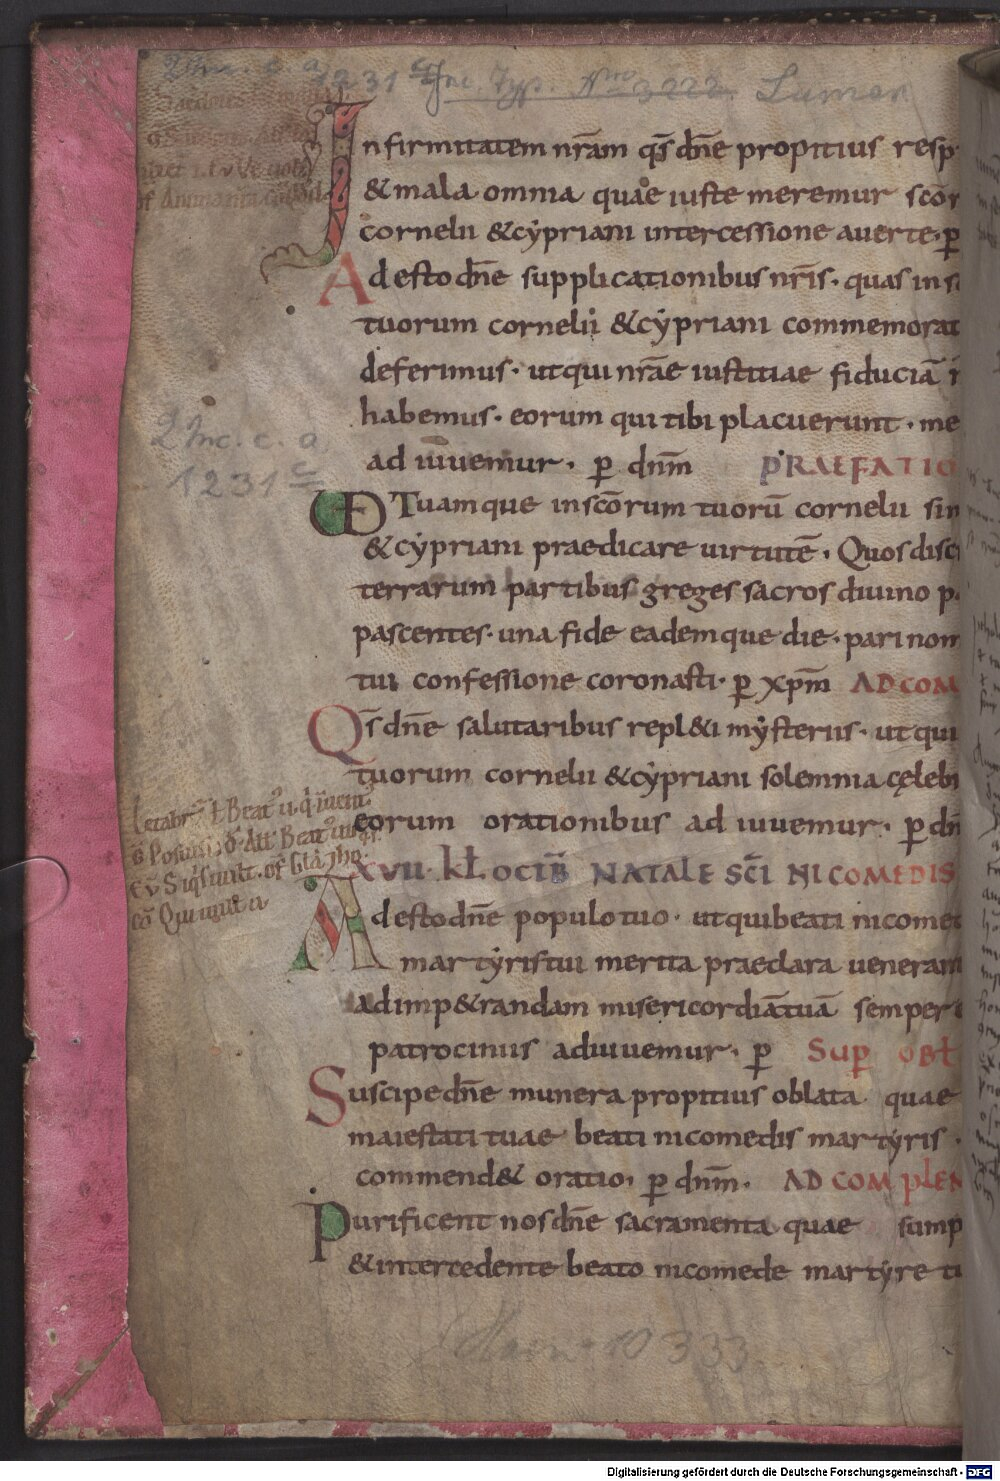 2 Inc. c. a.
1231 c Inc. Typ. Nro 3222.
Infirmitatem nr̄am qs̄ dn̄e propitius resp
& mala omnia quae iuste meremur scōr
cornelii &cẏpriani intercessione auerte· ꝑ
Adesto dn̄e supplicationibus nr̄is· quas in s
tuorum cornelii &cẏpriani commemorat
deferimus· ut qui nr̄ae iustitiae fiduciā
habemus· eorum qui tibi placuerunt· me
ad iuuemur· ꝑ dnm̄ PRAEFATIO
2 Inc. c. a.
1231 c
UD Tuamque in scōrum tuorū cornelii sim
&cẏpriani praedicare uirtutē· Quos disc
terrarum partibus greges sacros diuino p
pascentes· una fide eademque die· pari nom
tui confessione coronasti· ꝑ xpm̄ AD COM
Qs̄ dn̄e salutaribus repl&i mẏsteriis· ut qui
tuorum cornelii &cẏpriani solemnia cęlebr
eorum orationibus ad iuuemur· ꝑ dn̄
XVII· kƚ OCTB̄ NATALE SC̄I NICOMEDIS
Adesto dn̄e populo tuo· ut qui beati nicomed
martẏris tui merita praeclara ueneran
ad imp&randam misericordiā tuā semper
patrociniis adiuuemur· ꝑ SUP OBƚ
Suscipe dn̄e munera propitius oblata quae
maiestati tuae beati nicomedis martẏris·
commend& oratio· ꝑ dnm̄· AD COMPLEN
Purificent nos dn̄e sacramenta quae sump
&intercedente beato nicomede martẏre tu
Hain 10333
Digitalisierung gefördert durch die Deutsche Forschungsgemeinschaft - DFG